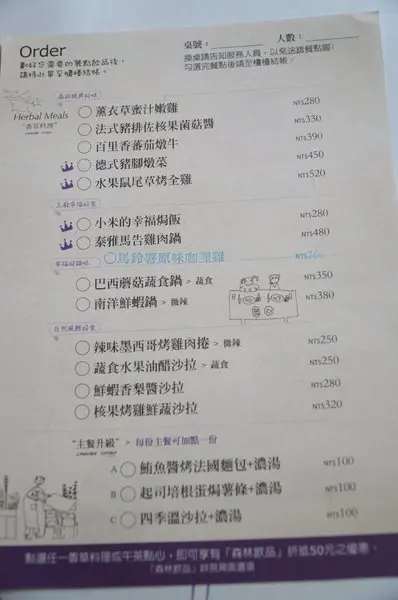 Order
桌號：
人數：
劃好您需要的餐點飲品後，
請持此單至櫃檯結帳。
換桌請告知服務人員，以免送錯餐點喔!
勾選完餐點後請至櫃檯結帳。
Herbal Meals
"香草料理"
薰衣草蜜汁嫩雞 NT$280
法式豬排佐核果菌菇醬 NT$330
百里香蕃茄燉牛 NT$390
德式豬腳燉菜 NT$450
水果鼠尾草烤全雞 NT$520
小米的幸福焗飯 NT$280
泰雅馬告雞肉鍋 NT$480
馬鈴薯原味咖哩雞 NT$260
巴西蘑菇蔬食鍋 > 蔬食 NT$350
南洋鮮蝦鍋 > 微辣 NT$380
辣味墨西哥烤雞肉捲 > 微辣 NT$250
蔬食水果油醋沙拉 > 蔬食 NT$250
鮮蝦香梨醬沙拉 NT$280
核果烤雞鮮蔬沙拉 NT$320
"主餐升級" > 每份主餐可加點一份
A 鮪魚醬烤法國麵包+濃湯 NT$100
B 起司培根蛋焗薯條+濃湯 NT$100
C 四季溫沙拉+濃湯 NT$100
點選任一香草料理或午茶點心，即可享有「森林飲品」折抵50元之優惠。
「森林飲品」詳見背面選項